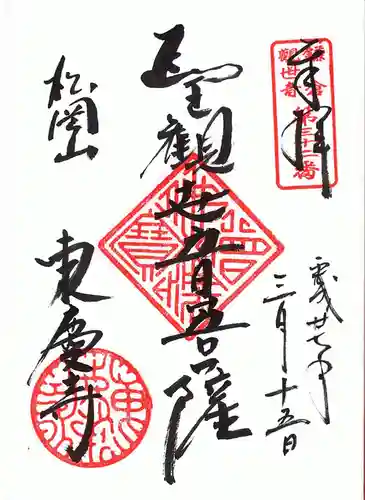 奉拝
鎌倉
観世音
第三十二番
廿七年
三月十五日
聖観世音菩薩
松岡山
東慶寺